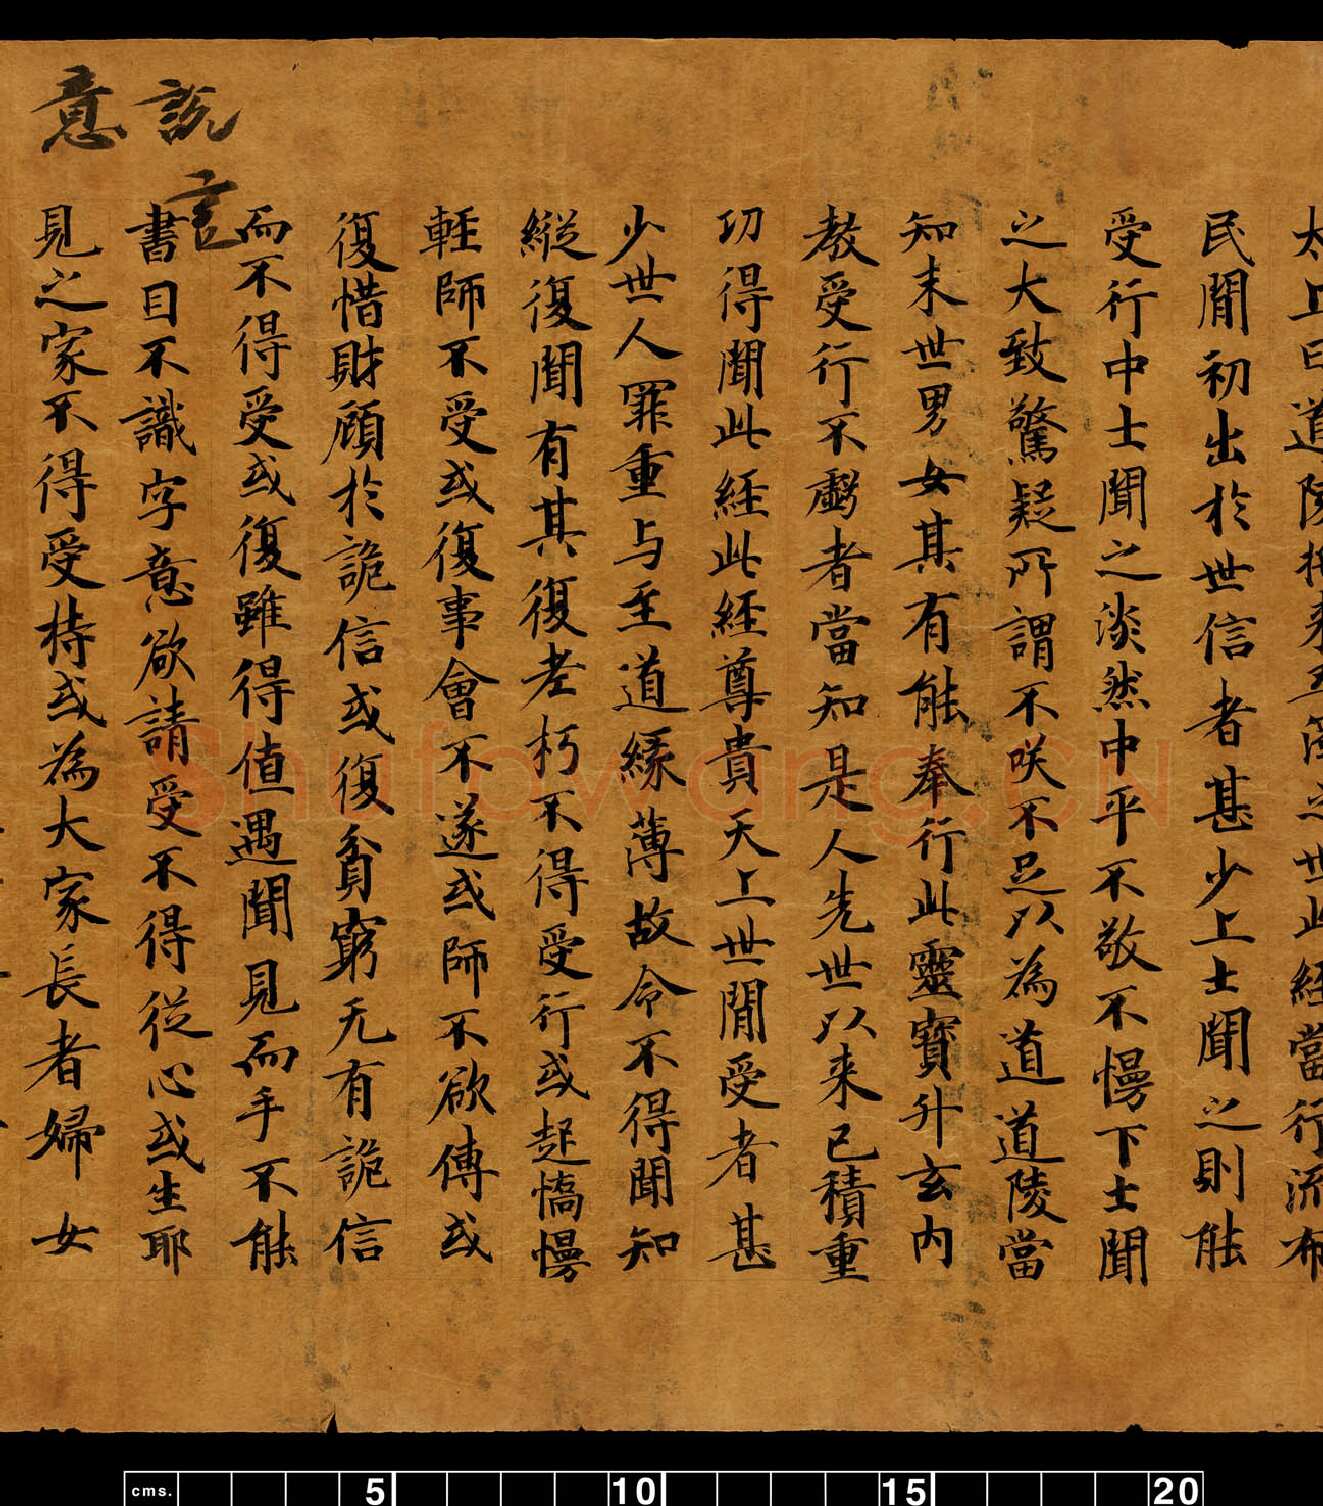 太上曰道陵推來至箇之世此經當行流布
民間初出於世信者甚少上士聞之則能
受行中士聞之淡然中平不敬不慢下士聞
之大致驚疑所謂不咲不足以為道道陵當
知末世男女其有能奉行此靈寶升玄內
教受行不虧者當知是人先世以来已積重
功得聞此經此經尊貴天上世間受者甚
少世人罪重与至道緣薄故令不得聞知
縱復聞有其復老朽不得受行或起憍慢
輕師不受或復事會不遂或師不欲傳或
復惜財顧於詭信或復貧窮无有詭信
而不得受或復雖得值遇聞見而手不能
書目不識字意欲請受不得從心或生耶
見之家不得受持或為大家長者婦女
說
言
意
Shufawang.CN
cms. 5 10 15 20